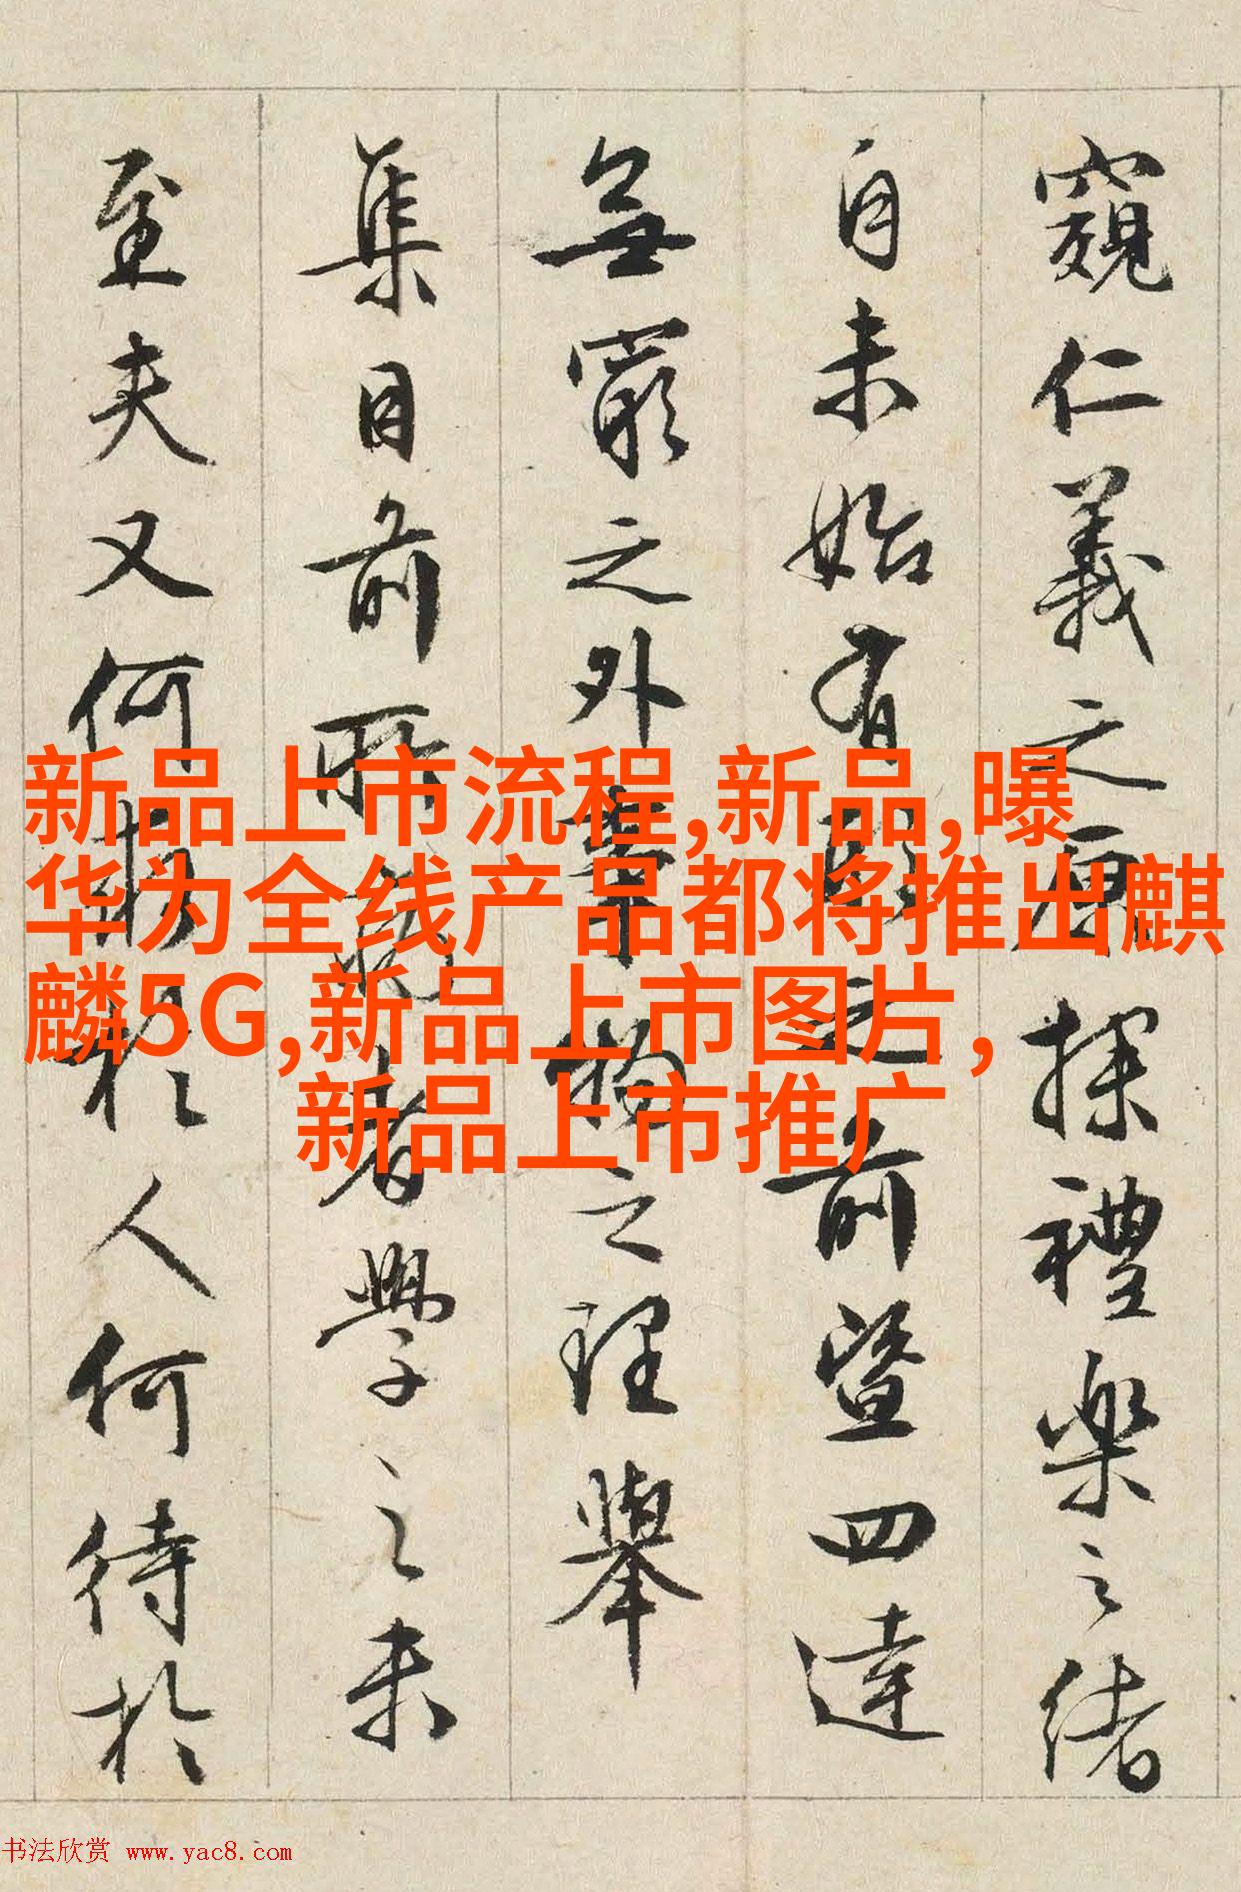 窺仁義之原探禮樂之緒
自未始有歌之前暨四達
無窮之外事物之理舉
集目前所謂學者學之未
至夫又何務於人何待於
新品上市流程,新品,曝
华为全线产品都将推出麒
麟5G,新品上市图片,
新品上市推广
书法欣赏 www.yac8.com